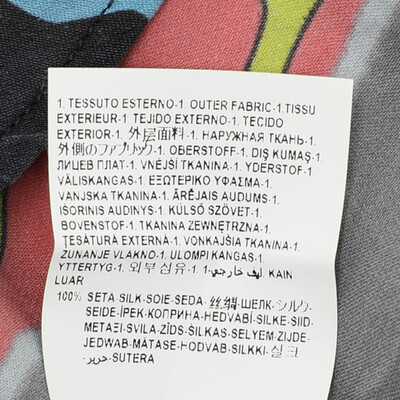 1. TESSUTO ESTERNO-1. OUTER FABRIC-1.TISSU
EXTERIEUR-1. TEJIDO EXTERNO-1. TECIDO
EXTERIOR-1. 外层面料-1. НАРУЖНАЯ ТКАНЬ-1.
外側のファブリック-1. OBERSTOFF-1. DIŞ KUMAŞ-1.
ЛИЦЕВ ПЛАТ-1. VNĚJŠÍ TKANINA-1. YDERSTOF-1.
VÄLISKANGAS-1. ΕΞΩΤΕΡΙΚΟ ΥΦΑΣΜΑ-1.
VANJSKA TKANINA-1. ĀRĒJAIS AUDUMS-1.
IŠORINIS AUDINYS-1. KÜLSŐ SZÖVET-1.
BOVENSTOF-1. TKANINA ZEWNĘTRZNA-1.
ŢESĂTURĂ EXTERNĂ-1. VONKAJŠIA TKANINA-1.
ZUNANJE VLAKNO-1. ULOMPI KANGAS-1.
YTTERTYG-1. 외부 섬유-1. ليف خارجي-1. 1. KAIN
LUAR
100% SETA SILK-SOIE-SEDA-丝绸-ШЕЛК-シルク-
SEIDE-İPEK-КОПРИНА-HEDVÁBÍ-SILKE-SIID-
ΜΕΤΑΞΙ-SVILA-ZĪDS-ŠILKAS-SELYEM-ZIJDE-
JEDWAB-MĂTASE-HODVÁB-SILKKI-실크
-حرير-SUTERA